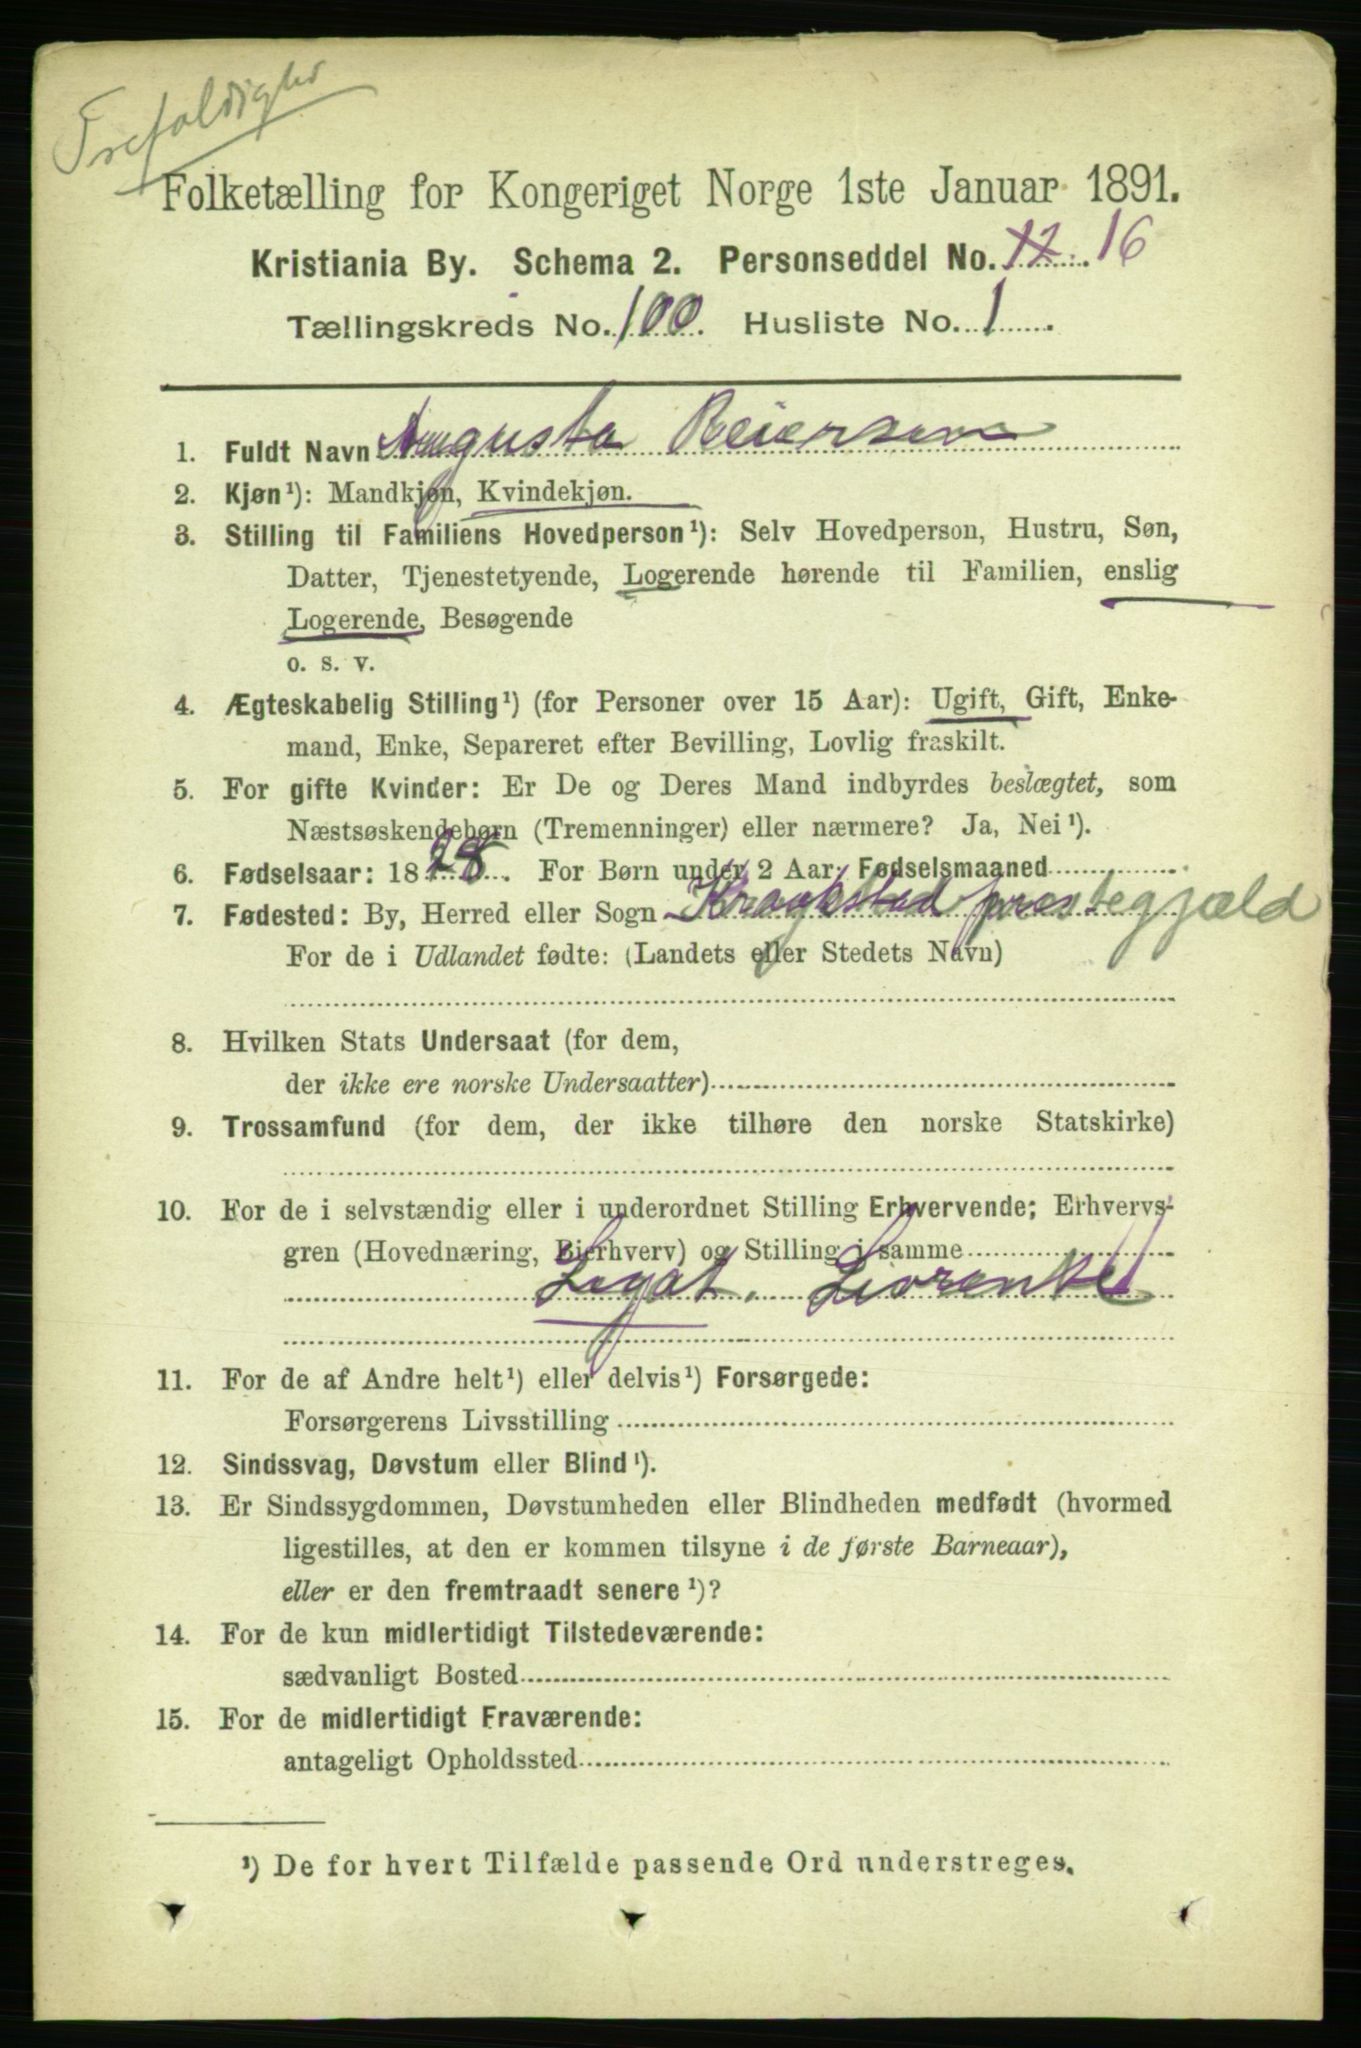 Trefoldighed
Folketælling for Kongeriget Norge 1ste Januar 1891.
Kristiania By. Schema 2. Personseddel No. 12 16
Tællingskreds No. 100. Husliste No. 1
1. Fuldt Navn Augusta Reiersen
2. Kjøn¹): Mandkjøn, Kvindekjøn.
3. Stilling til Familiens Hovedperson¹): Selv Hovedperson, Hustru, Søn,
Datter, Tjenestetyende, Logerende hørende til Familien, enslig
Logerende, Besøgende
o. s. v.
4. Ægteskabelig Stilling¹) (for Personer over 15 Aar): Ugift, Gift, Enke-
mand, Enke, Separeret efter Bevilling, Lovlig fraskilt.
5. For gifte Kvinder: Er De og Deres Mand indbyrdes beslægtet, som
Næstsøskendebørn (Tremenninger) eller nærmere? Ja, Nei¹).
6. Fødselsaar: 1828. For Børn under 2 Aar: Fødselsmaaned
7. Fødested: By, Herred eller Sogn Kraakstad præstegjæld
For de i Udlandet fødte: (Landets eller Stedets Navn)
8. Hvilken Stats Undersaat (for dem,
der ikke ere norske Undersaatter)
9. Trossamfund (for dem, der ikke tilhøre den norske Statskirke)
10. For de i selvstændig eller i underordnet Stilling Erhvervende; Erhvervs-
gren (Hovednæring, Bierhverv) og Stilling i samme
Legat. Livrente
11. For de af Andre helt¹) eller delvis¹) Forsørgede:
Forsørgerens Livsstilling
12. Sindssvag, Døvstum eller Blind¹).
13. Er Sindssygdommen, Døvstumheden eller Blindheden medfødt (hvormed
ligestilles, at den er kommen tilsyne i de første Barneaar),
eller er den fremtraadt senere¹)?
14. For de kun midlertidigt Tilstedeværende:
sædvanligt Bosted
15. For de midlertidigt Fraværende:
antageligt Opholdssted
¹) De for hvert Tilfælde passende Ord understreges.